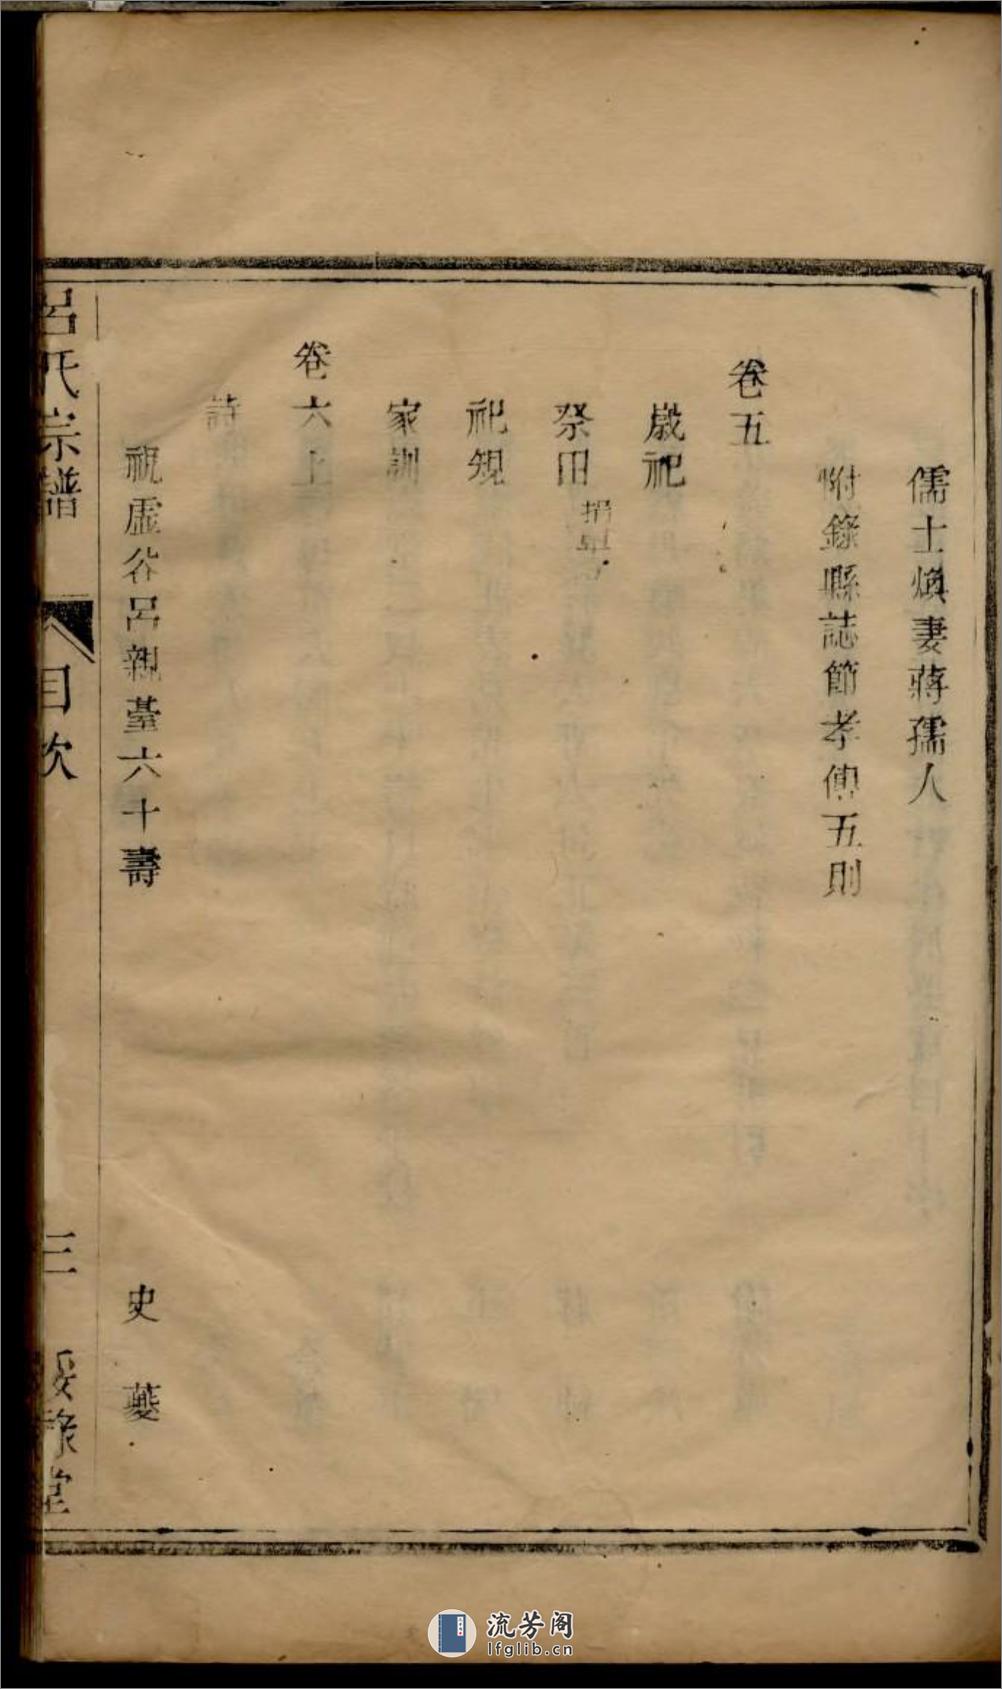 儒士煥妻蔣孺人
附錄縣誌節孝傳五則
卷五
歲祀
祭田
祀規
家訓
卷六上
詩
祝虛谷呂親臺六十壽 史夔
呂氏宗譜 目次 三 綏祿堂
流芳阁
lfglib.cn